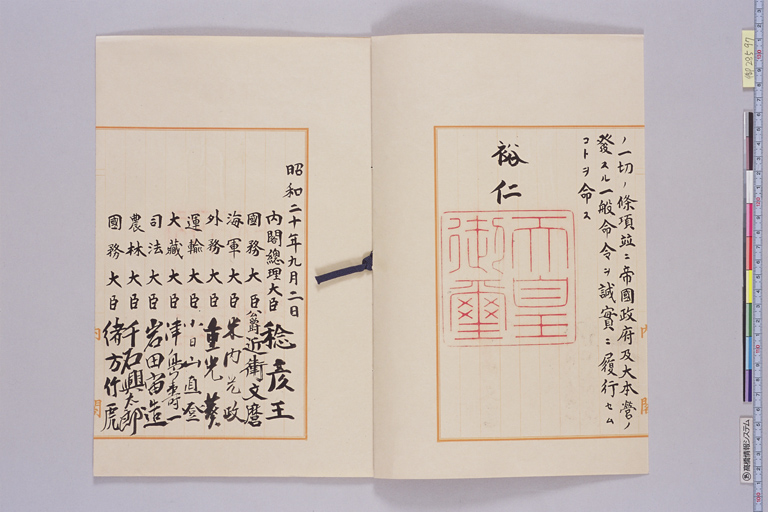 ノ一切ノ條項竝ニ帝國政府及大本營ノ
發スル一般命令ヲ誠實ニ履行セム
コトヲ命ス
裕仁
天皇御璽
昭和二十年九月二日
内閣總理大臣 稔彦王
國務大臣 公爵 近衛文麿
海軍大臣 米内光政
外務大臣 重光葵
運輸大臣 小日山直登
大藏大臣 津島壽一
司法大臣 岩田宙造
農林大臣 千石興太郎
國務大臣 緒方竹虎
内
閣
髙橋情報システム